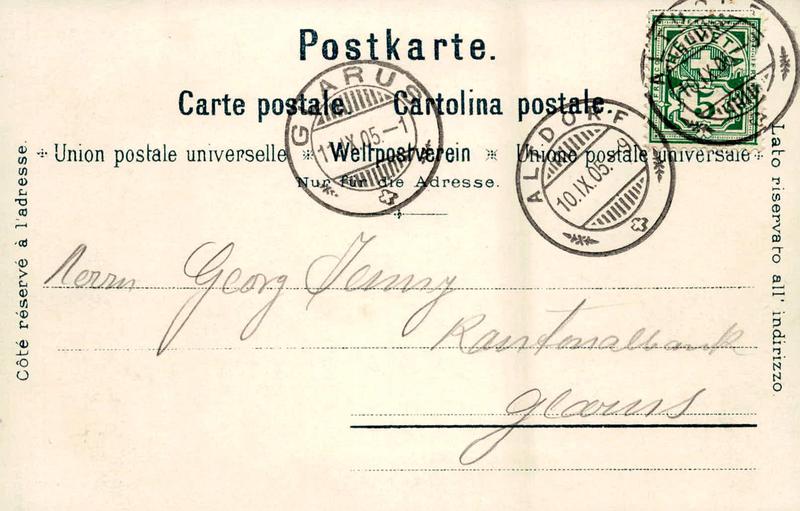 Postkarte.
Carte postale. Cartolina postale.
Union postale universelle Weltpostverein Unione postale universale
Nur für die Adresse.
Côté réservé à l'adresse.
Lato riservato all' indirizzo.
GLARUS
IX.05.-1
ALTDORF
10.IX.05.
HELVETIA
5
Herrn Georg Jenny
Kantonalbank
Glarus